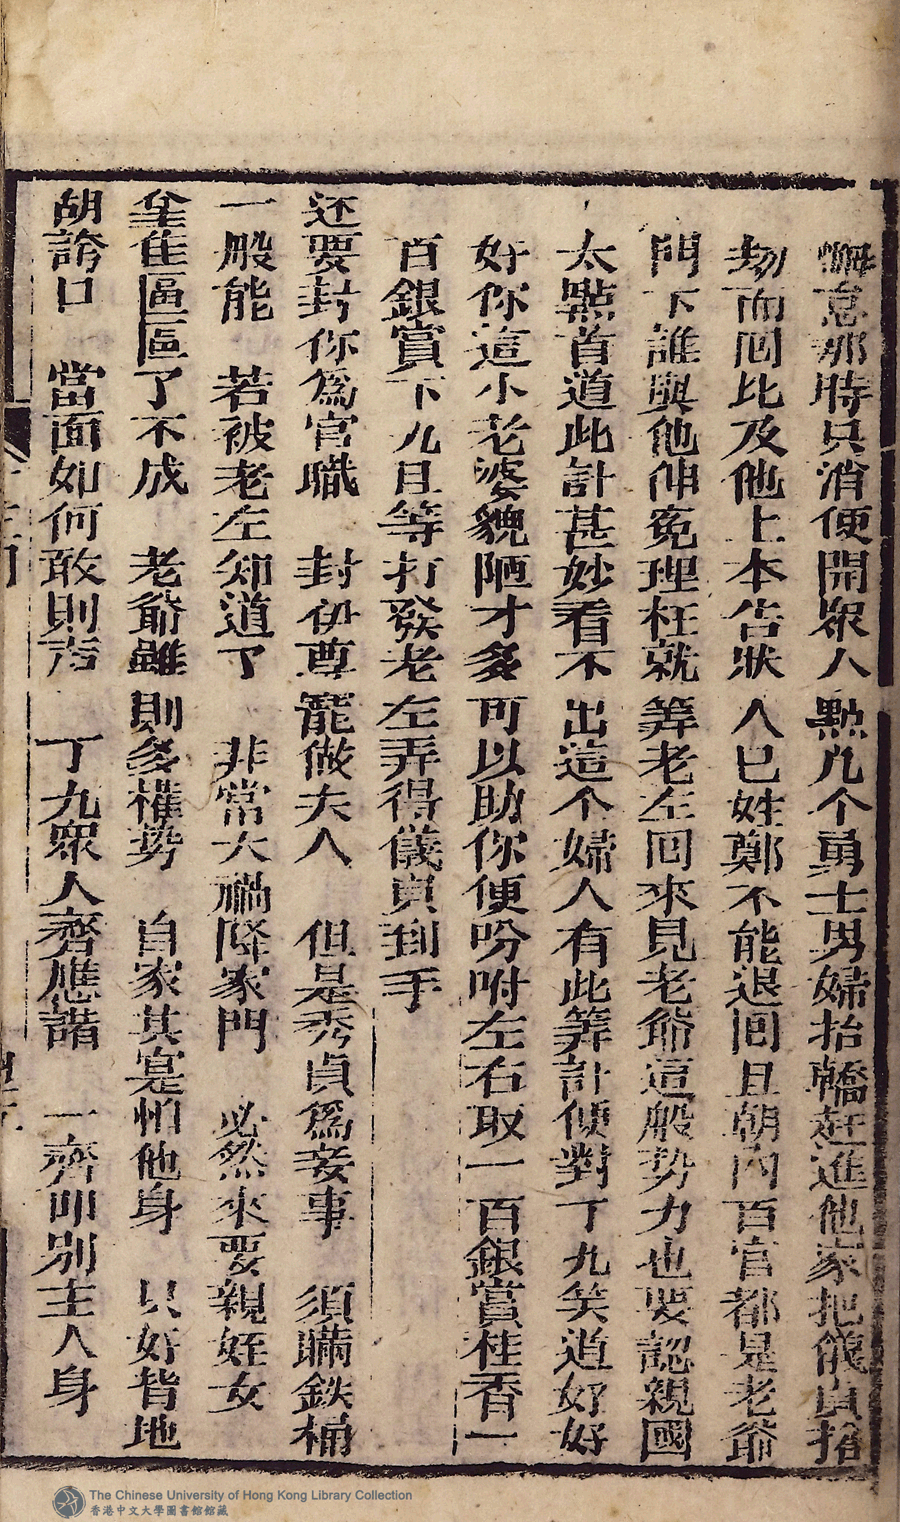 懈怠那時只消便開眾人點几个勇士男婦抬轎赶進他家把儀貞搶
刼而囘比及他上本告狀人巳姓鄭不能退囘且朝内百官都是老爺
門下誰與他伸冤理枉就筭老左囘來見老爺這般势力也要認親國
太㸃首道此計甚妙看不出這个婦人有此筭計便對丁九笑道好好
好你這小老婆貌陋才多可以助你便吩咐左右取一百銀賞桂香一
百銀賞丁九且等打發老左弄得儀貞到手
还要封你爲官職　封伊尊寵做夫人　但是秀貞爲妾事　須瞞鉄桶
一般能　若被老左知道了　非常大禍降家門　必然來要親姪女
區區了不成　老爺雖則多權势　自家其寔怕他身　只好背地
胡誇口　當面如何敢則声　丁九眾人齊應諾　一齊叩别主人身
The Chinese University of Hong Kong Library Collection
香港中文大學圖書館館藏